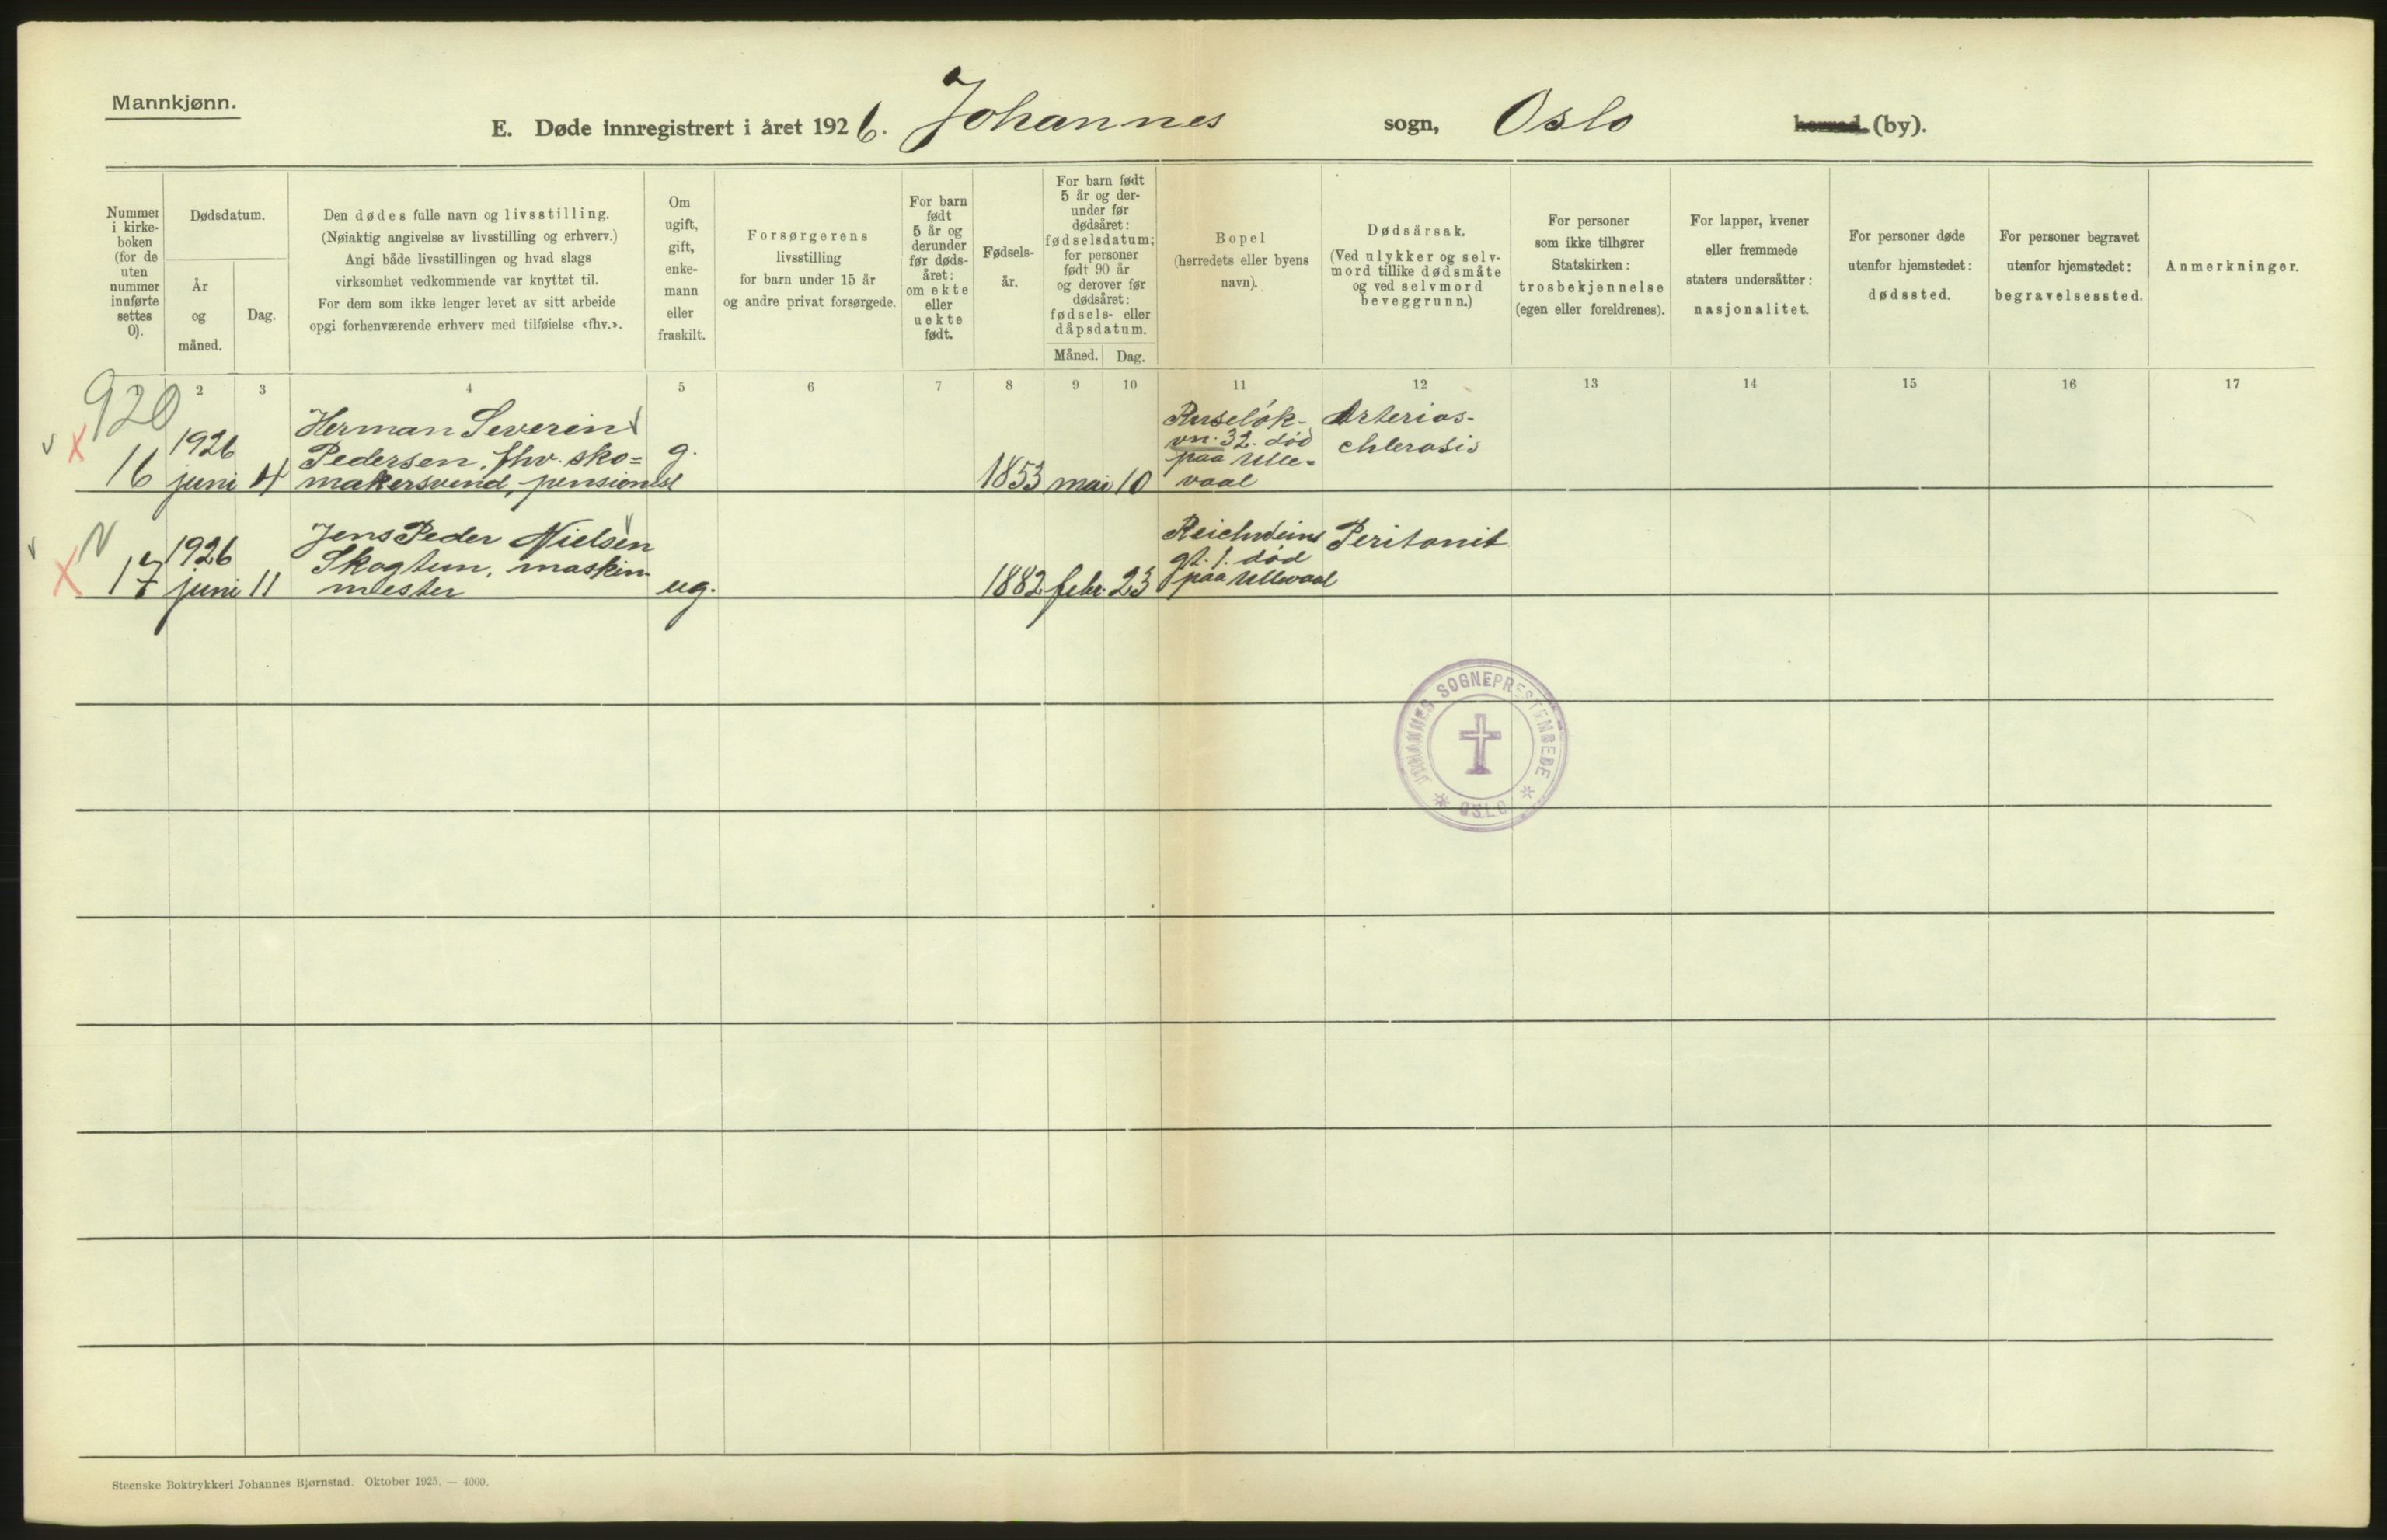 Mannkjønn.
E. Døde innregistrert i året 1926. Johannes sogn, Oslo herred (by).
Nummer
i kirke-
boken
(for de
uten
nummer
innførte
settes
0).
Dødsdatum.
År
og
måned.
Dag.
Den dødes fulle navn og livsstilling.
(Nøiaktig angivelse av livsstilling og erhverv.)
Angi både livsstillingen og hvad slags
virksomhet vedkommende var knyttet til.
For dem som ikke lenger levet av sitt arbeide
opgi forhenværende erhverv med tilføielse «fhv.».
Om
ugift,
gift,
enke-
mann
eller
fraskilt.
Forsørgerens
livsstilling
for barn under 15 år
og andre privat forsørgede.
For barn
født
5 år og
derunder
før døds-
året:
om ekte
eller
uekte
født.
Fødsels-
år.
For barn født
5 år og der-
under før
dødsåret:
fødselsdatum;
for personer
født 90 år
og derover før
dødsåret:
fødsels- eller
dåpsdatum.
Måned.
Dag.
Bopel
(herredets eller byens
navn).
Dødsårsak.
(Ved ulykker og selv-
mord tillike dødsmåte
og ved selvmord
beveggrunn.)
For personer
som ikke tilhører
Statskirken:
trosbekjennelse
(egen eller foreldrenes).
For lapper, kvener
eller fremmede
staters undersåtter:
nasjonalitet.
For personer døde
utenfor hjemstedet:
dødssted.
For personer begravet
utenfor hjemstedet:
begravelsessted.
Anmerkninger.
2 3 4 5 6 7 8 9 10 11 12 13 14 15 16 17
920
16
1926
juni
4
Herman Severin
Pedersen, fhv. sko=
makersvend, pensionist
g.
1853
mai
10
Ruseløk-
vn. 32. død
paa Ulle-
vaal
Arterios-
chlerosis
N
17
1926
juni
11
Jens Peder Nielsen
Skogtun, maskin-
mester
ug.
1882
febr.
23
Reichweins
gt. 1. død
paa Ullevaal
Peritonit
JOHANNES SOGNEPRESTEMBEDE
* OSLO *
Steenske Boktrykkeri Johannes Bjørnstad. Oktober 1925. — 4000.